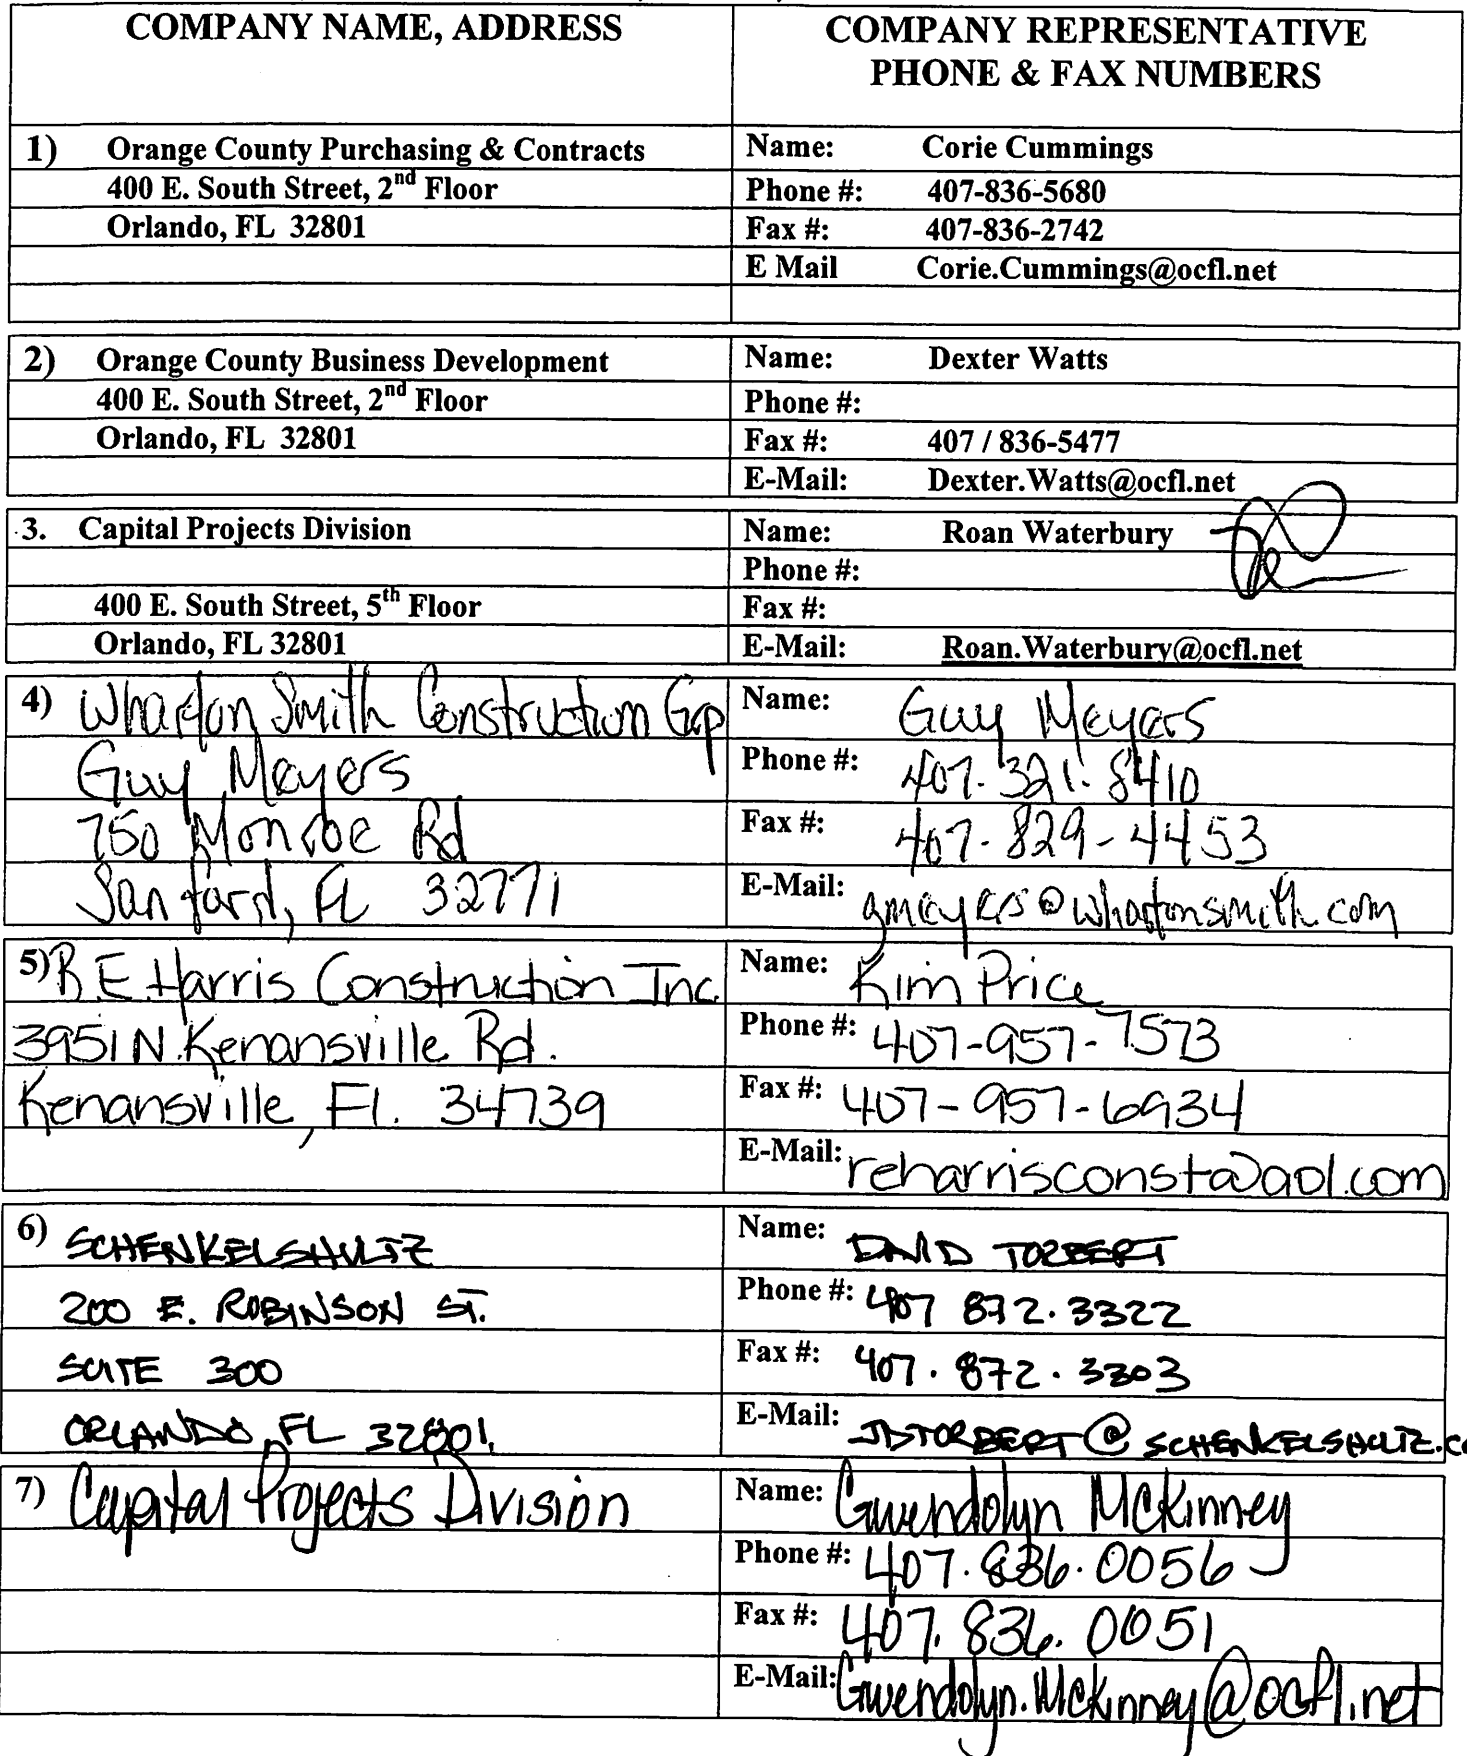 COMPANY NAME, ADDRESS
COMPANY REPRESENTATIVE
PHONE & FAX NUMBERS
1) Orange County Purchasing & Contracts
Name: Corie Cummings
400 E. South Street, 2nd Floor
Phone #: 407-836-5680
Orlando, FL 32801
Fax #: 407-836-2742
E Mail Corie.Cummings@ocfl.net
2) Orange County Business Development
Name: Dexter Watts
400 E. South Street, 2nd Floor
Phone #:
Orlando, FL 32801
Fax #: 407 / 836-5477
E-Mail: Dexter.Watts@ocfl.net
3. Capital Projects Division
Name: Roan Waterbury
Phone #:
400 E. South Street, 5th Floor
Fax #:
Orlando, FL 32801
E-Mail: Roan.Waterbury@ocfl.net
4) Wharton Smith Construction Grp
Name: Guy Meyers
Guy Meyers
Phone #: 407.321.8410
750 Monroe Rd
Fax #: 407-829-4453
Sanford, FL 32771
E-Mail: gmeyers@whartonsmith.com
5) R.E. Harris Construction Inc.
Name: Kim Price
3951 N. Kenansville Rd.
Phone #: 407-957-7573
Kenansville, Fl. 34739
Fax #: 407-957-6934
E-Mail: reharrisconst@aol.com
6) SCHENKELSHULTZ
Name: DAVID TORBERT
200 E. ROBINSON ST.
Phone #: 407 872.3322
SUITE 300
Fax #: 407.872.3303
ORLANDO, FL 32801
E-Mail: JDTORBERT@SCHENKELSHULTZ.co
7) Capital Projects Division
Name: Gwendolyn McKinney
Phone #: 407.836.0056
Fax #: 407.836.0051
E-Mail: Gwendolyn.McKinney@ocfl.net